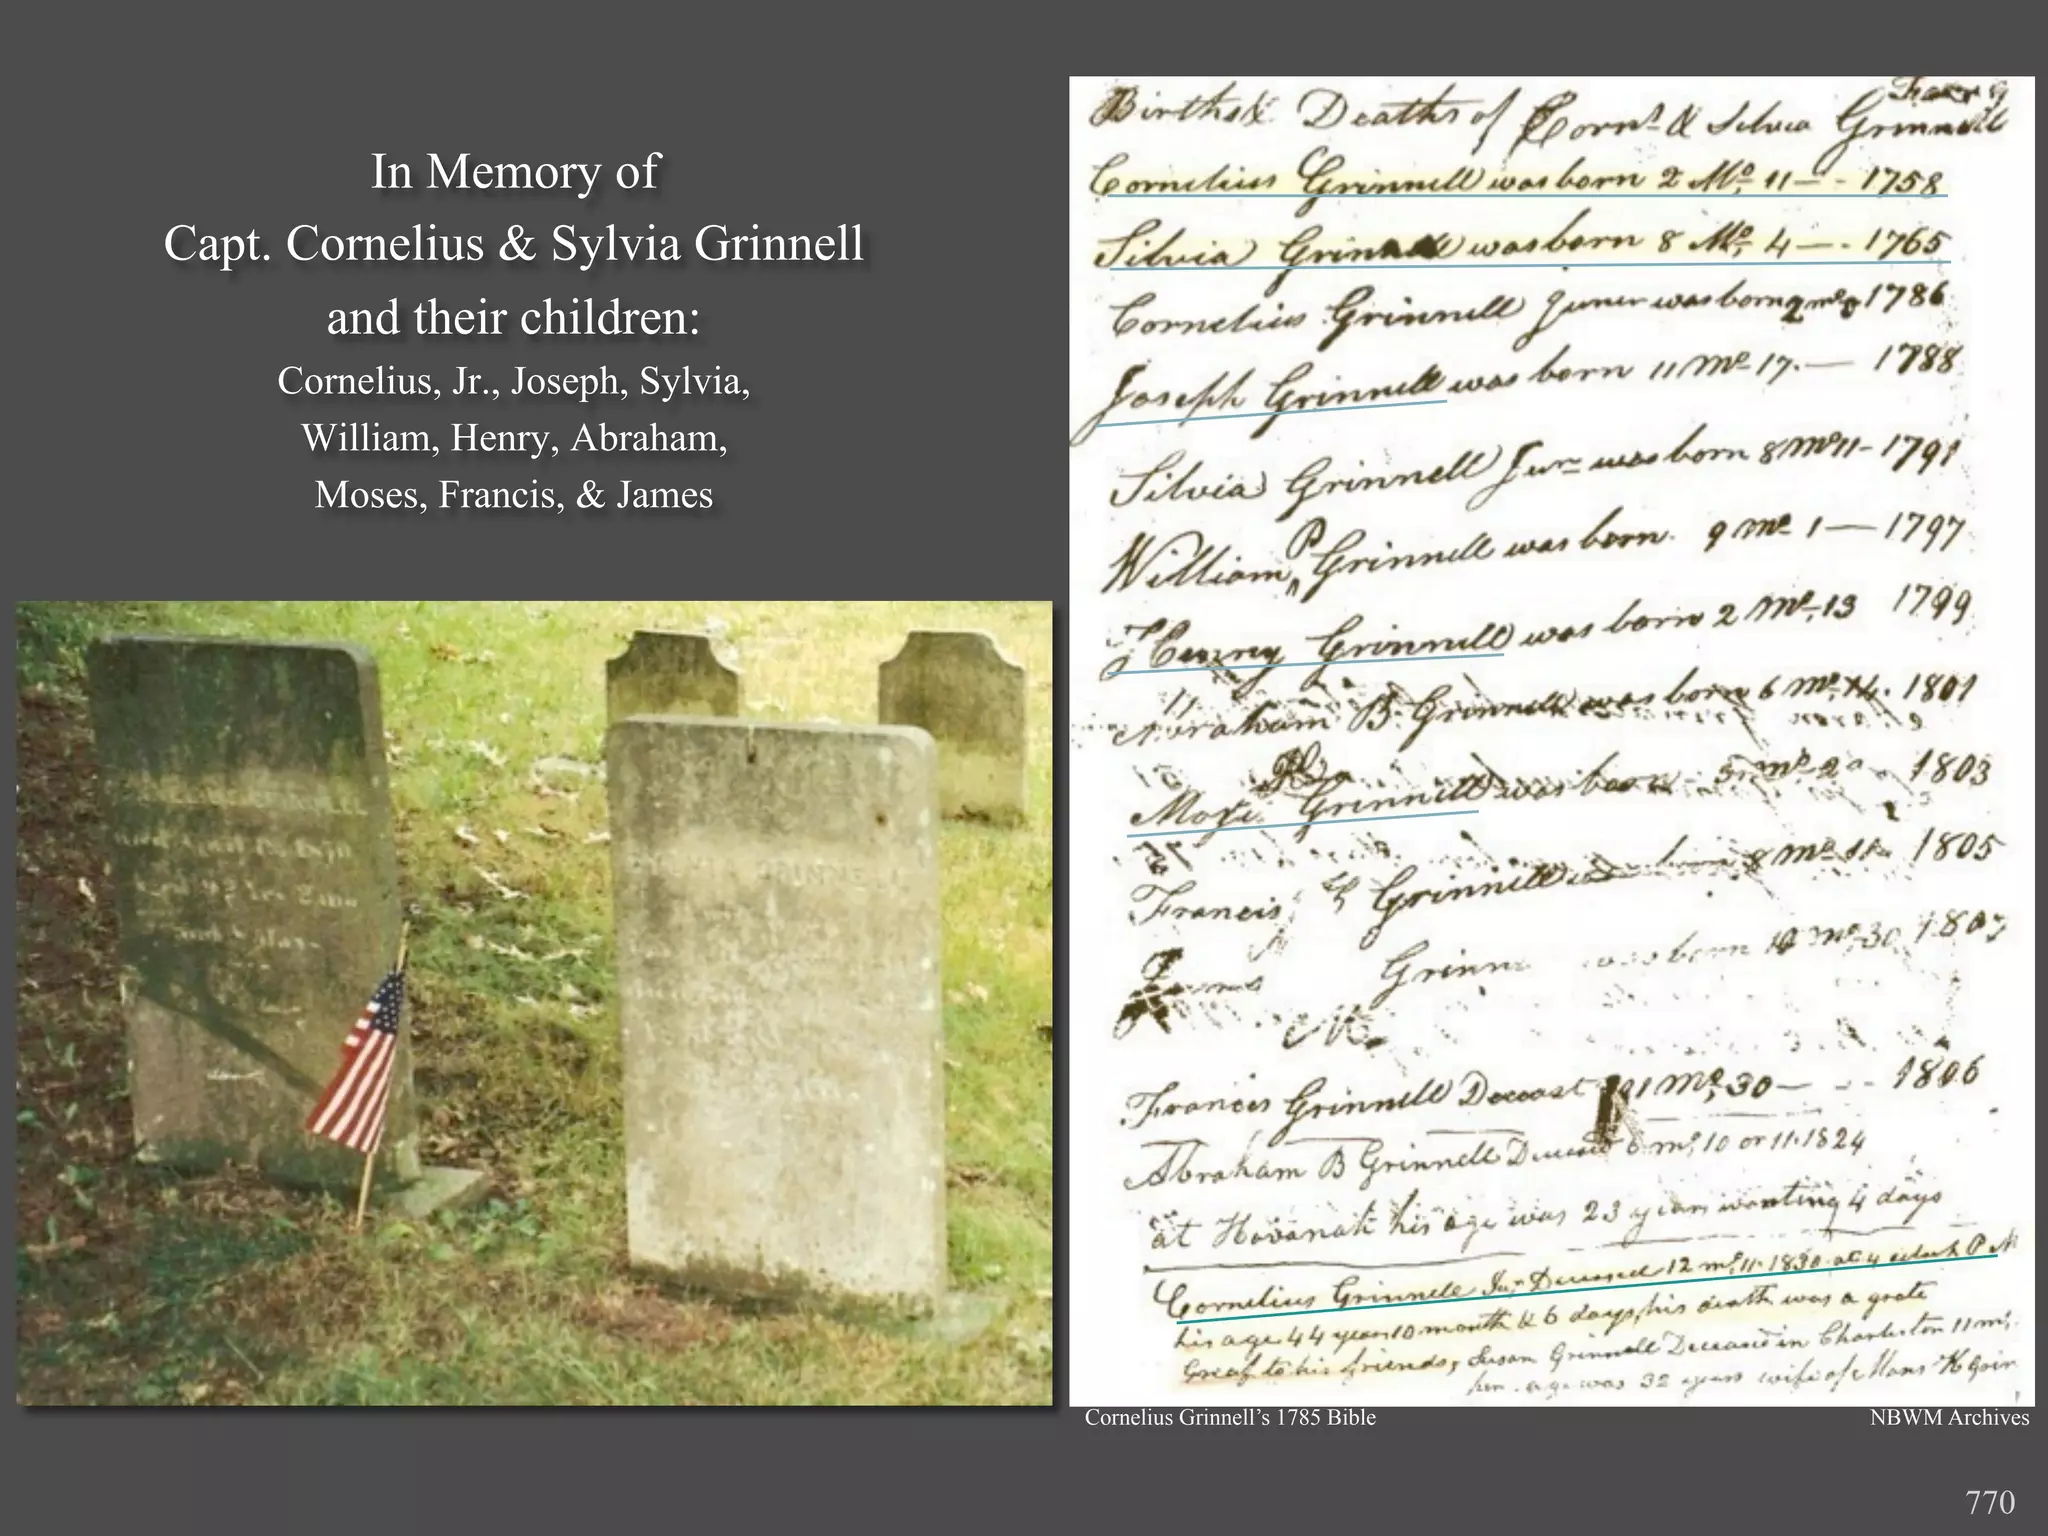 In Memory of
Capt. Cornelius & Sylvia Grinnell
and their children:
Cornelius, Jr., Joseph, Sylvia,
William, Henry, Abraham,
Moses, Francis, & James
Births & Deaths of Corns & Silvia Grinnell
Cornelius Grinnell was born 2 Mo, 11 — - 1758
Silvia Grinnell was born 8 Mo, 4 — - 1765
Cornelius Grinnell Juner was born 2 mo 1786
Joseph Grinnell was born 11 Mo 17. — 1788
Silvia Grinnell Junr was born 8 Mo 11 - 1791
William P Grinnell was born 9 mo 1 — 1797
Henry Grinnell was born 2 Mo, 13 1799
Abraham B Grinnell was born 6 Mo, 14. 1801
Grinnell was born mo 1803
Francis Grinnell born 8 Mo 1805
Grinn was born mo 30 1807
Francis Grinnell Deceast 1 Mo, 30 — - - 1806
Abraham B Grinnell Deceased 6 mo, 10 or 11. 1824
at Havanah his age was 23 years wanting 4 days
Cornelius Grinnell Jur Deceased 12 mo, 11. 1830 at 4 oclock P M
his age 44 years 10 month & 6 days, his death was a grate
Greaf to his friends, Susan Grinnell Deceased in Charleston 11 mo,
her age was 32 years wife of Grin
GRINNELL
Cornelius Grinnell’s 1785 Bible
NBWM Archives
770